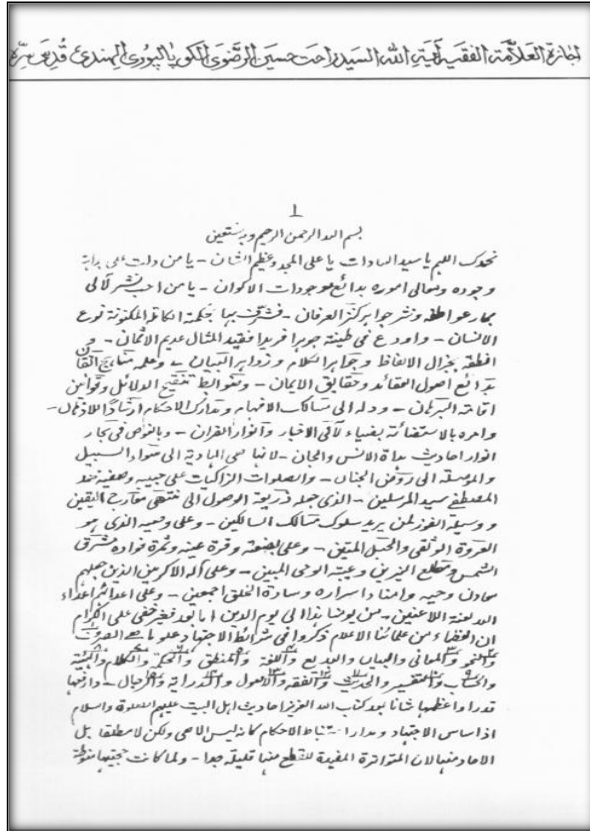 اجازة العلامة الفقيه آية الله السيد راحت حسين الرضوي الگوپالپوري الهندي قدس سره
١
بسم الله الرحمن الرحيم وبه نستعين
نحمدك اللهم يا سيد السادات يا على المجد وعظيم الشان - يا من دلت على بداية
وجوده ومعالى اموره بدائع موجودات الاكوان - يا من احب نشر لآلى
بحار عواطفه ونشر جواهر كنز العرفان - فشرّف بها بحكمة المكنونة نوع
الانسان - واودع فى طينة جوهرا فريدا فقيد المثال عديم الاثمان -
انطقه بجزال الالفاظ وجواهر الكلام وزواهر البيان - وعلمه مناهج
بدائع اصول العقائد وحقايق الايمان - وضوابط تنقيح الدلائل وقوانين
اقامة البرهان - ودله الى مسالك الافهام ومدارك الاحكام ارشادا للاذهان -
وامره بالاستضائة بضياء لآلى الاخبار وانوار القران - وبالغوص فى بحار
انوار احاديث هداة الانس والجان - لانها هى الهادية الى سواء السبيل
والموصلة الى روض الجنان - والصلوات الزاكيات على حبيبه وصفيه محمد
المصطفى سيد المرسلين - الذى جعله ذريعة الوصول الى منتهى معارج اليقين
ووسيلة الفوز لمن يريد سلوك مسالك السالكين - وعلى وصيه الذى هو
العروة الوثقى والحبل المتين - وعلى بضعته وقرة عينه وثمرة فواده مشرق
الشمس ومطلع النيرين وعيبة الوحى المبين - وعلى آله الاكرمين الذين جعلهم
معادن وحيه وامناء اسراره وسادة الخلق اجمعين - وعلى اعدائهم اعداء
الدين لعنة اللاعنين - من يومنا هذا الى يوم الدين اما بعد فغير خفى على الكرام
ان الفضلاء من علمائنا الاعلام ذكروا فى شرائط الاجتهاد علوما هى الصرف
والنحو والمعانى والبيان والبديع واللغة والمنطق والحكمة والكلام والهيئة
والحساب والتفسير والحديث والفقه والاصول والدراية والرجال - وارفعها
قدرا واعظمها شانا بعد كتاب الله العزيز احاديث اهل البيت عليهم الصلوة والسلام
اذ اساس الاجتهاد ومدار استنباط الاحكام كانه ليس الا هى ولكن لا مطلقا بل
الاحاد منها لان المتواترة المفيدة للقطع منها قليلة جدا - ولما كانت حجيتها منوطة